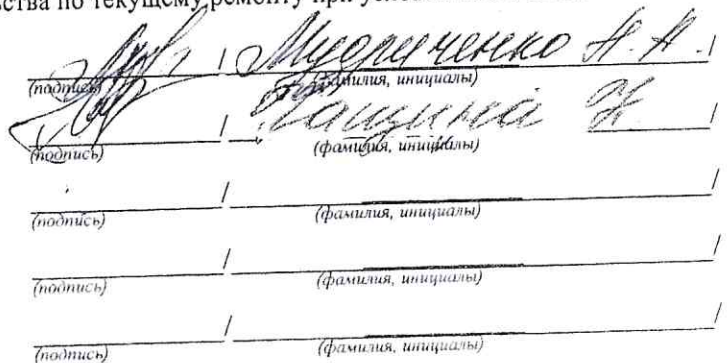 ства по текущему ремонту при
/ Мудриченко А. А. /
(подпись) (фамилия, инициалы)
/ /
(подпись) (фамилия, инициалы)
/ /
(подпись) (фамилия, инициалы)
/ /
(подпись) (фамилия, инициалы)
/ /
(подпись) (фамилия, инициалы)